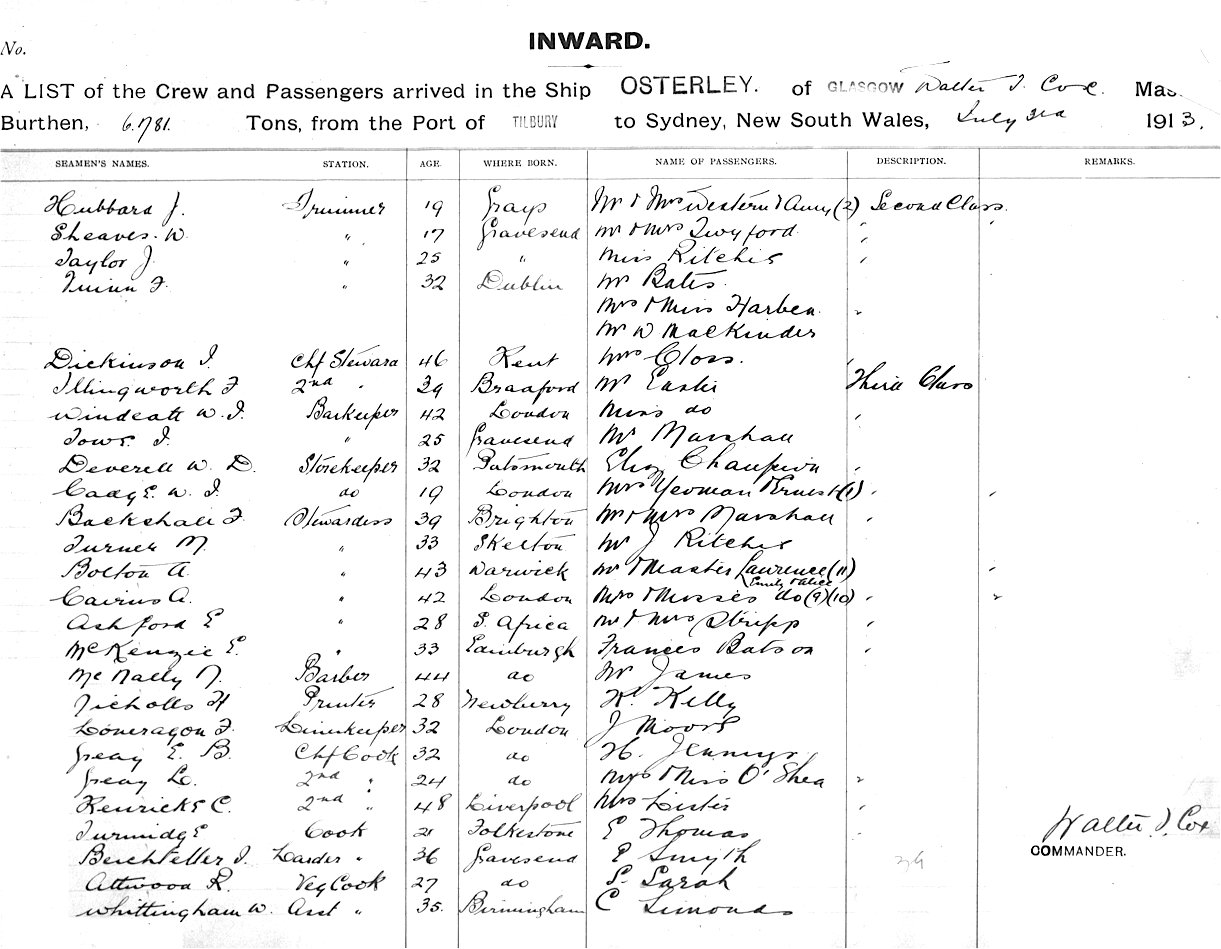 INWARD.
No.
A LIST of the Crew and Passengers arrived in the Ship OSTERLEY. of GLASGOW Walter J. Coxe. Mas.
Burthen, 6.781. Tons, from the Port of TILBURY to Sydney, New South Wales, July 3rd 1913.
SEAMEN'S NAMES. STATION. AGE. WHERE BORN. NAME OF PASSENGERS. DESCRIPTION. REMARKS.
Hubbard J. Trimmer 19 Grays Mr & Mrs Western & Amy (2) Second Class.
Sheaves. W. " 17 Gravesend Mr & Mrs Twyford "
Taylor J. " 25 " Miss Ritchie "
Quinn F " 32 Dublin Mr Bates
Mrs & Miss Harben "
Mr W Mackinder
Dickinson J. Chf Steward 46 Kent Mrs Closs. "
Illingworth F 2nd " 39 Bradford Mr Eastie Third Class
Windeatt W. J. Barkeeper 42 London Miss do "
J. " 25 Gravesend Mr Marshall
Deverell W. D. Storekeeper 32 Portsmouth Eliz Champion "
Cadge W. J. do 19 London Mrs Yeoman & Ernest (1) " "
Backshall F Stewardess 39 Brighton Mr & Mrs Marshall "
Turner M. " 33 Skelton Mr J Ritchie
Bolton A. " 43 Warwick Mr & Master Lawrence (11) "
Emily & Alice
Cairns A. " 42 London Mrs & Misses do (9) (10) " "
Ashford E " 28 S. Africa Mr & Mrs Stripp "
McKenzie E. " 33 Edinburgh Frances Batson "
McNally N. Barber 44 do Mr James
Nicholls H Printer 28 Newberry K. Kelly
Loneragon F. Linenkeeper 32 London J Moore
Greay E. B. Chf Cook 32 do H. Jennings
Greay L. 2nd " 24 do Mrs & Miss O'Shea "
Kenricks C. 2nd " 48 Liverpool Mrs Lister "
Turmidge Cook 21 Folkestone E Thomas "
Walter J. Cox
COMMANDER.
J. Larder " 36 Gravesend E Smyth 39
Attwood R. Veg Cook 27 do S. Sarah
Whittingham W. Asst " 35. Birmingham C Simonds